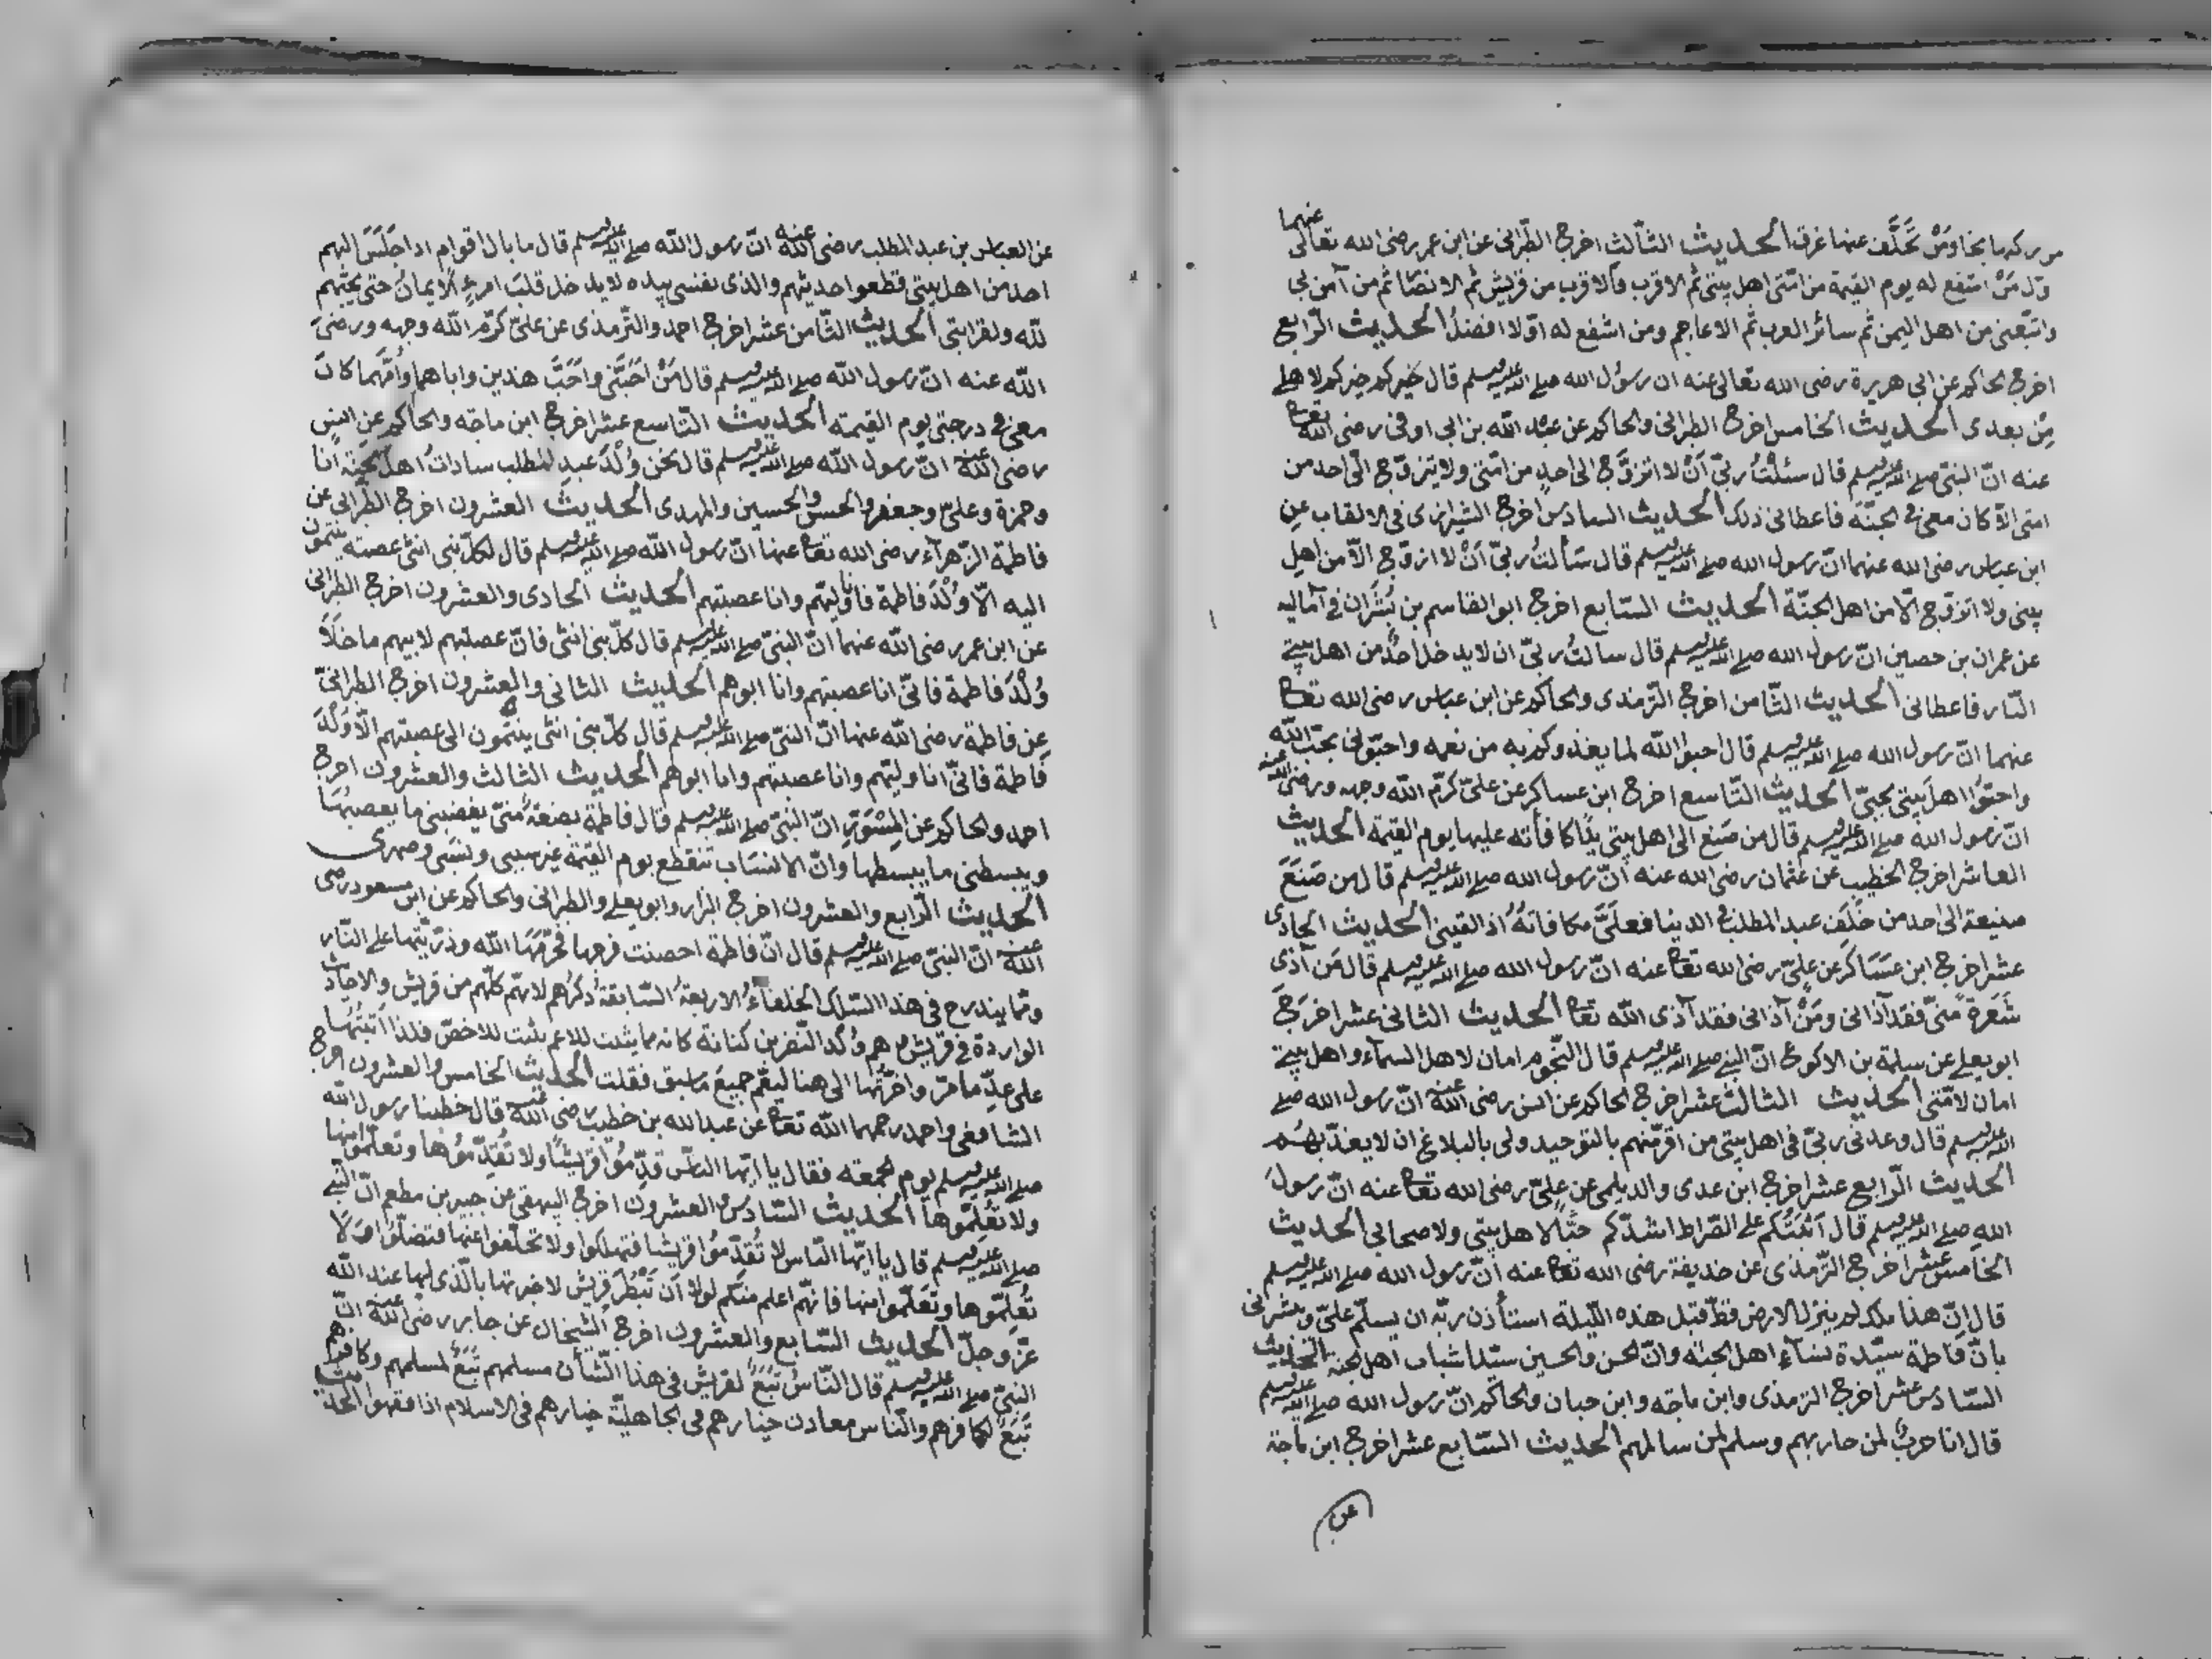 من ركبها نجا ومَنْ تَخَلَّف عنها غرق الحديث الثّالث اخرج الطّبرانى عن ابن عمر رضى الله تعالى عنهما
اوّل مَنْ اشفع له يوم القيمة من امّتى اهل بيتى ثم الاقرب فالاقرب من قريش ثم الانصار ثم من آمن بى
واتّبعنى من اهل اليمن ثم سائر العرب ثم الاعاجم ومن اشفع له اوّلا افضلُ الحديث الرّابع
اخرج الحاكم عن ابى هريرة رضى الله تعالى عنه ان رسول الله صلى الله عليه وسلم قال خيركم خيركم لاهلى
مِنْ بعدى الحديث الخامس اخرج الطبرانى والحاكم عن عبد الله بن ابى اوفى رضى الله تعا
عنه انّ النبىّ صلى الله عليه وسلم قال سئلْتُ ربىّ اَنْ لا اتزوَّج الى احدٍ من امّتى ولا يتزوّج الىّ احد من
امتى الاّ كان معى فى الجنّة فاعطانى ذلك الحديث السادس اخرج الشيرازى فى الالقاب عن
ابن عباس رضى الله عنهما انّ رسول الله صلى الله عليه وسلم قال سَأَلتُ ربىّ اَنْ لا ازوّج الاّ من اهل
بيتى ولا اتزوّج الاّ من اهل الجنّة الحديث السّابع اخرج ابو القاسم بن بُشْرَان فى آماليه
عن عمران بن حصين انّ رسول الله صلى الله عليه وسلم قال سالتُ ربىّ ان لا يدخل احدٌ من اهل بيتى
النّار فاعطانى الحديث الثّامن اخرج الترمذى والحاكم عن ابن عباس رضى الله تعا
عنهما انّ رسول الله صلى الله عليه وسلم قال احبوا الله لما يغذوكم به من نعمه واحبّونى بحبّ الله
واحبّوا اهل بيتى بحبىّ الحديث التّاسع اخرج ابن عساكر عن علىّ كرّم الله وجهه ورضى الله عنه
انّ رسول الله صلى الله عليه وسلم قال من صَنع الى اهل بيتى يدًا كافأته عليها يوم القيمة الحديث
العاشر اخرج الخطيب عن عثمان رضى الله عنه انّ رسول الله صلى الله عليه وسلم قال من صَنَعَ
صنيعة الى احد من خَلَف عبد المطلب فى الدينا فعلَىَّ مكافاتهُ اذ القينى الحديث الحادى
عشر اخرج ابن عسَاكر عن علىّ رضى الله تعا عنه انّ رسول الله صلى الله عليه وسلم قال مَن آذى
شَعَرةً منىّ فقد آذانى ومَنْ آذانى فقد آذى الله تعا الحديث الثانى عشر اخرَجَ
ابو يعلى عن سلمة بن الاكوع انّ النبى صلى الله عليه وسلم قال النّجوم امان لاهل السمآء واهل بيتى
امان لامّتى الحديث الثالث عشر اخرج الحاكم عن انس رضى الله عنه انّ رسول الله صلى
الله عليه وسلم قال وعدنى ربىّ فى اهل بيتى من اقرّمنهم بالتوحيد ولى بالبلاغ ان لا يعذّبهم
الحديث الرّابع عشر اخرج ابن عدى والديلمى عن علىّ رضى الله تعا عنه انّ رسول
الله صلى الله عليه وسلم قال اَثبتُكم على الصّراط اشدّكم حبًّا لاهل بيتى ولاصحابى الحديث
الخامس عشر اخرج الترمذى عن حذيفة رضى الله تعا عنه انّ رسول الله صلى الله عليه وسلم
قال انّ هذا ملك لم ينزل الارض قطّ قبل هذه الليلة استأذن ربّه ان يسلّم علىّ ويبشرنى
بانّ فاطمة سيّدة نسآء اهل الجنّة وانّ الحسن والحسين سيّدا شباب اهل الجنة الحديث
السّادس عشر اخرج الترمذى وابن ماجه وابن حبان والحاكم انّ رسول الله صلى الله عليه وسلم
قال انا حربٌ لمن حاربهم وسلم لمن سالمهم الحديث السّابع عشر اخرج ابن ماجة
عن
عن العباس بن عبد المطلب رضى الله عنه انّ رسول الله صلى الله عليه وسلم قال ما بال اقوام اذا جَلَسَ اليهم
احد من اهل بيتى قطعوا حديثهم والذى نفسى بيده لا يدخل قلبَ امرءٍ الايمانُ حتى يحبّهم
لله ولقرابتى الحديث الثّامن عشر اخرج احمد والترمذى عن علىّ كرّم الله وجهه ورضى
الله عنه انّ رسول الله صلى الله عليه وسلم قال مَنْ احَبَّنى واَحَبَّ هذين واباهما وأُمَّهما كانَ
معى فى درجتى يوم القيمة الحديث التّاسع عشر اخرج ابن ماجه والحاكم عن انس
رضى الله عنه انّ رسول الله صلى الله عليه وسلم قال نحن وُلْدَ عبد المطلب ساداتُ اهل الجنّة انا
وحمزة وعلىّ وجعفر والحسن والحسين والمهدى الحديث العشرون اخرج الطّبرانى عن
فاطمة الزّهرآء رضى الله تعا عنها انّ رسول الله صلى الله عليه وسلم قال لكلّ بنى انثى عصبة ينتمون
اليه الاّ وُلْدَ فاطمة فانا وليّهم وانا عصبتهم الحديث الحادى والعشرون اخرج الطبرانى
عن ابن عمر رضى الله عنهما انّ النبىّ صلى الله عليه وسلم قال كلّ بنى انثى فانّ عصبتهم لابيهم ما خلاَ
وُلْدَ فاطمة فانىّ انا عصبتهم وانا ابوهم الحديث الثانى والعشرون اخرج الطبرانىّ
عن فاطمة رضى الله عنها انّ النبىّ صلى الله عليه وسلم قال كلّ بنى انثى ينتمون الى عصبتهم الاّ وُلْدَ
فاطمة فانىّ انا وليّهم وانا عصبتهم وانا ابوهم الحديث الثالث والعشرون اخرج
احمد والحاكم عن المِسْوَرِ انّ النبىّ صلى الله عليه وسلم قال فاطمة بضعَةٌ منىّ يغضبنى ما يغضبُهَا
ويبسطنى ما يبسطها وانّ الانسَاب تنقطع يوم القيمة غير سببى ونسَبى وصهرى
الحديث الرّابع والعشرون اخرج البزار وابو يعلى والطبرانى والحاكم عن ابن مسعود رضى
الله عنه انّ النبىّ صلى الله عليه وسلم قال انّ فاطمة احصنت فرجها فحَرّمَهَا الله وذرّيتها على النّار
وممّا يندرج فى هذا السّلك الخلفآءُ الاربعةُ السّابقةُ ذكرُهم لانهّم كلّهم من قريش والاحاديث
الواردة فى قريش وهم وُلْد النّضر بن كنانة كانه مما يثبت للاعم يثبت للاخصّ فلذا اَثبَتُّهَا
على عدّ ما مرّ واخّرتُها الى هنا ليعُم جميعَ ما سبق فقلت الحديث الخامس والعشرون اخرج
الشافعى واحمد رحمهما الله تعا عن عبد الله بن خطب رضى الله عنه قال خطبنا رسول الله
صلى الله عليه وسلم يوم الجمعة فقال يا ايّها الناس قدِّمُوا قريشًا ولا تُقدِّمُوُها وتعلّموا منها
ولا تعُلِّمُوها الحديث السّادس والعشرون اخرج البيهقى عن جبير بن مطعم انّ النّبى
صلى الله عليه وسلم قال يا ايّها النّاس لا تُقدِّمُوا قريشا فتهلكوا ولا تخلّفوا عنها فتضلّوا ولا
تُعلِّموها وتعَلّموا منها فانهّم اعلم منكم لولا اَن تَبْطُرَ قريش لاخبرتها بالّذى لها عند الله
عزّ وجلّ الحديث السّابع والعشرون اخرج الشيخان عن جابر رضى الله عنه انّ
النبىّ صلى الله عليه وسلم قال النّاسُ تَبَعٌ لقريش فى هذا الشّأن مسلمهم تَبَعٌ لمسلمهم وكافرهم
تَبَعٌ لكافرهم والنّاس معادن خيارهم فى الجاهليّة خيارهم فى الاسلام اذا فقهوا الحديث